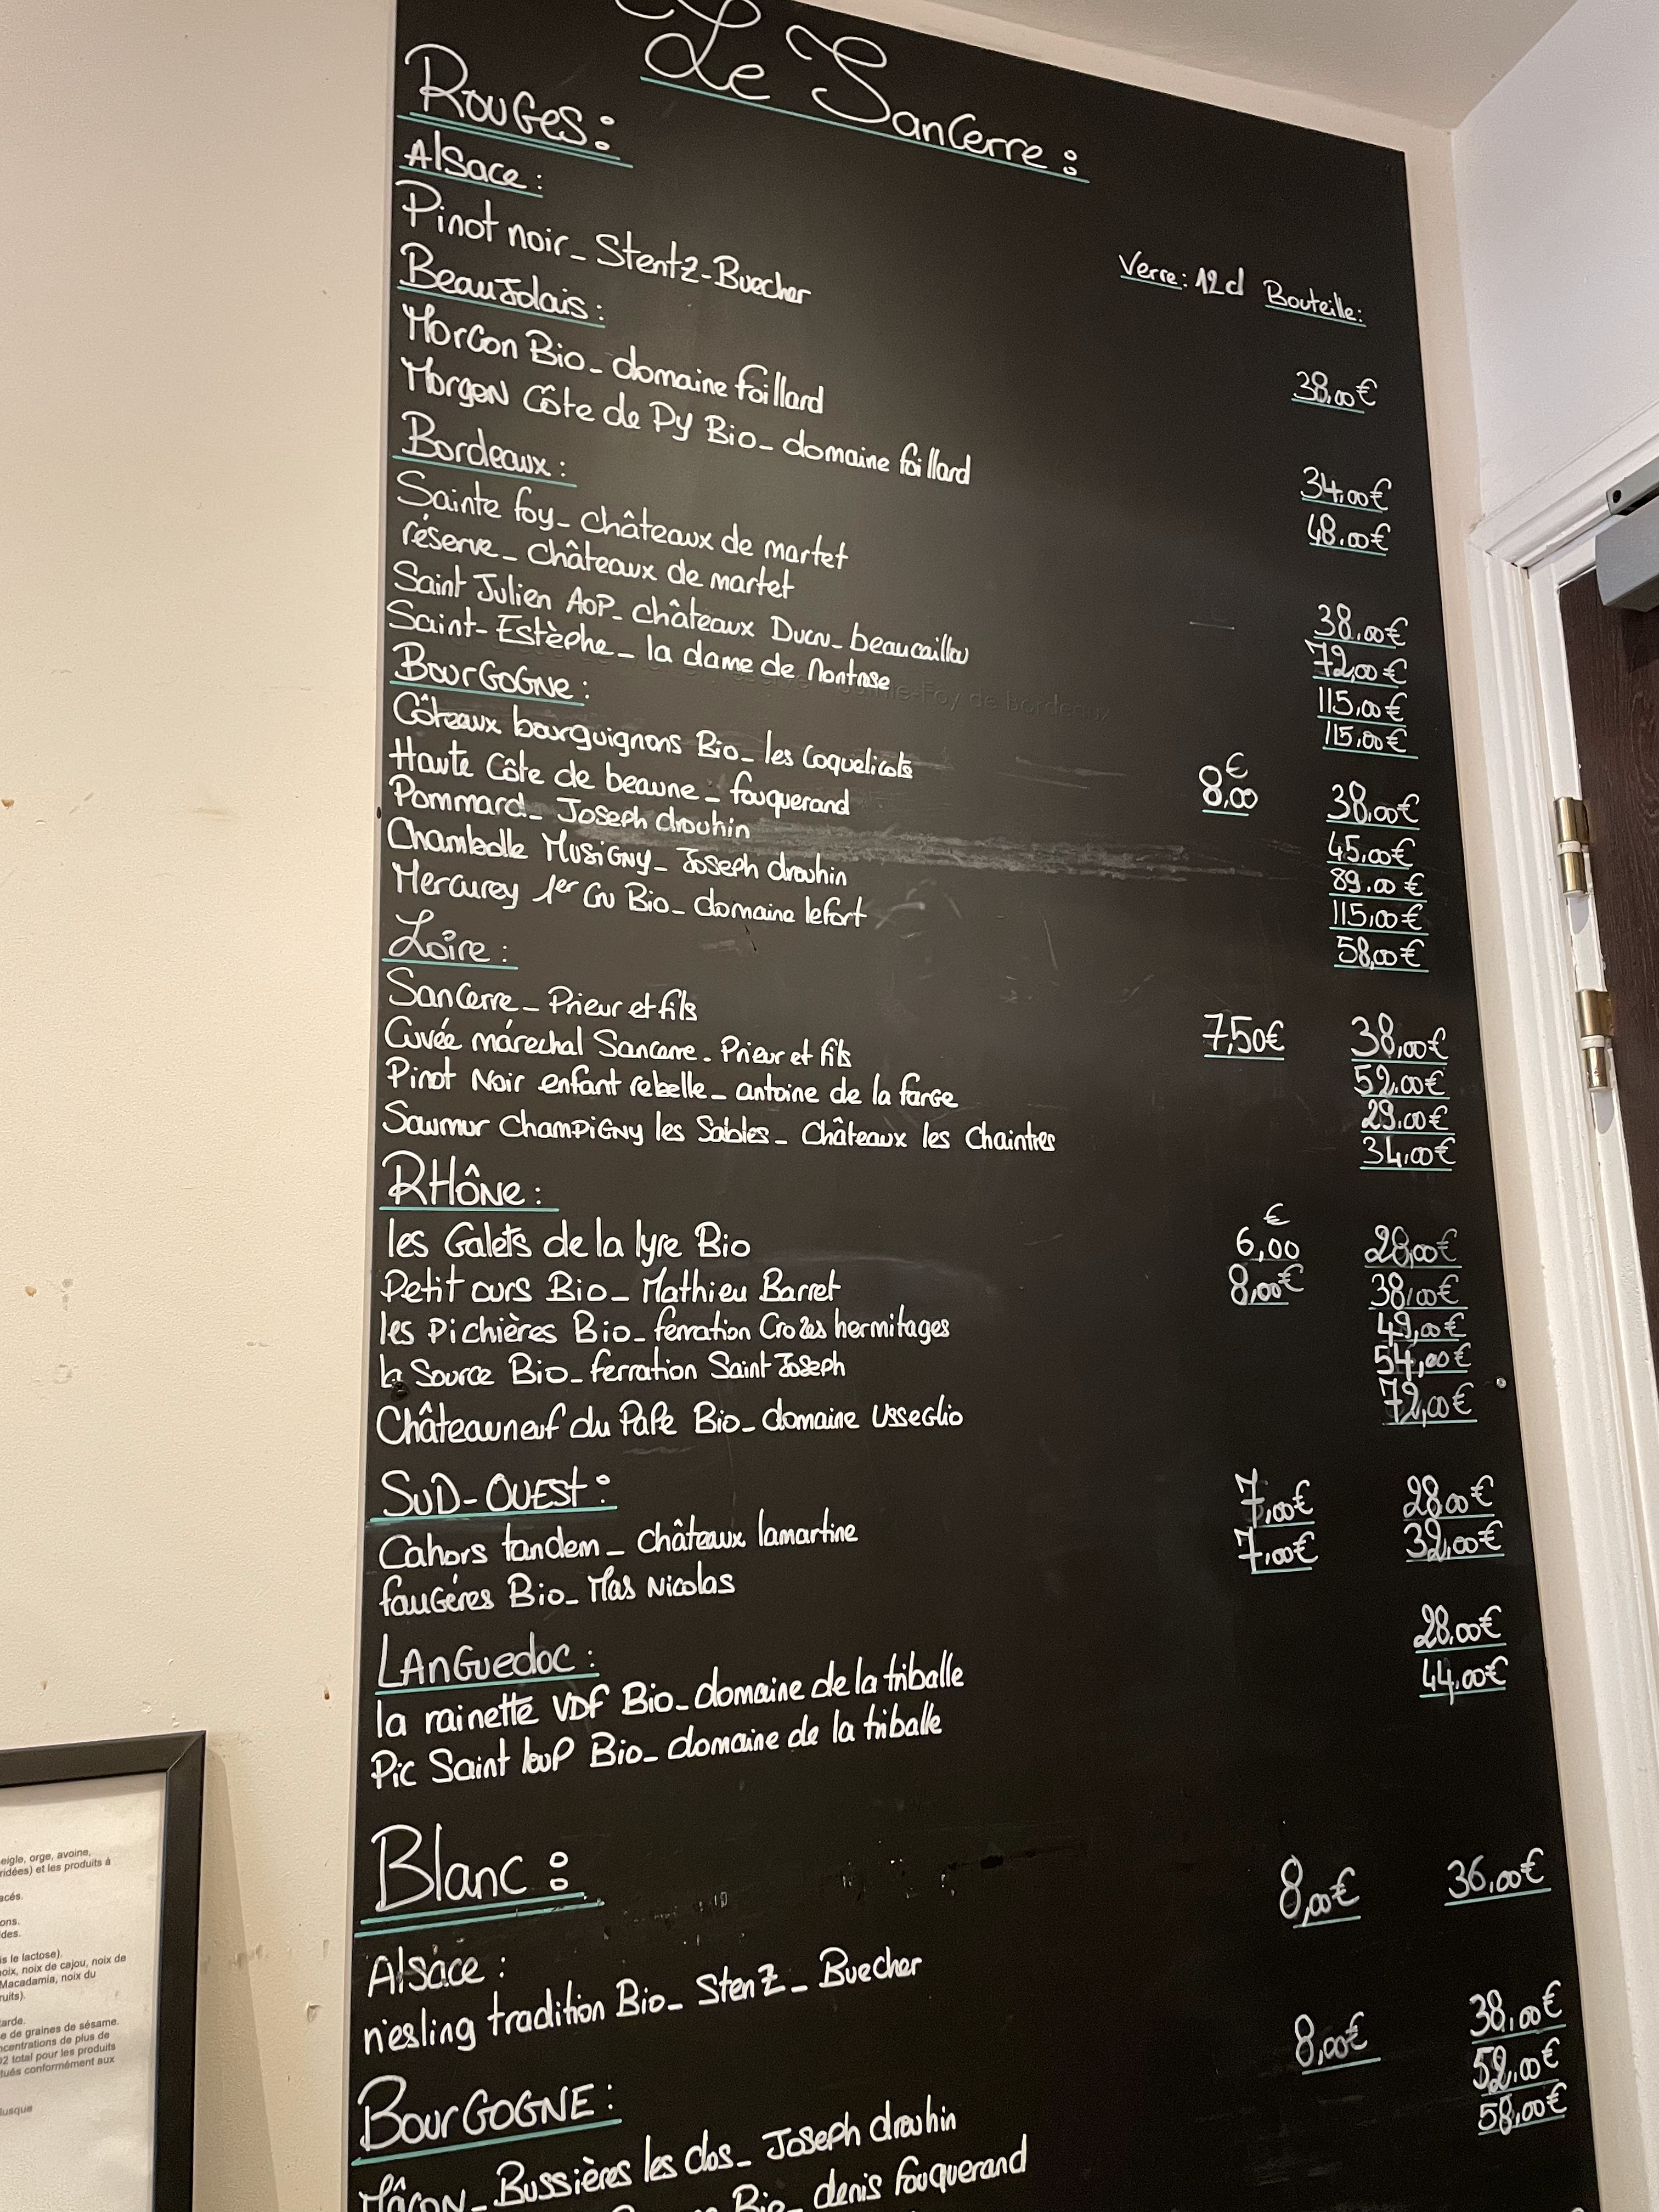 Le Sancerre :
Rouges :
Alsace :
Verre : 12cl Bouteille :
Pinot noir - Stentz-Buecher 38,00€
Beaujolais :
Morgon Bio - domaine foillard 34,00€
Morgon Côte de Py Bio - domaine foillard 48,00€
Bordeaux :
Sainte foy - châteaux de martet 38,00€
réserve - châteaux de martet 72,00€
Saint Julien AOP - châteaux Ducru-beaucaillou 115,00€
Saint-Estèphe - la dame de Montrose 115,00€
BourGOGNE :
Côteaux bourguignons Bio - les Coquelicots 8,00€ 38,00€
Haute Côte de beaune - fouquerand 45,00€
Pommard - Joseph drouhin 89,00€
Chambolle Musigny - Joseph drouhin 115,00€
Mercurey 1er Cru Bio - domaine lefort 58,00€
Loire :
Sancerre - Prieur et fils 7,50€ 38,00€
Cuvée máréchal Sancerre - Prieur et fils 52,00€
Pinot Noir enfant rebelle - antoine de la farge 29,00€
Saumur Champigny les Sables - Châteaux les Chaintres 34,00€
RHône :
les Galets de la lyre Bio 6,00€ 28,00€
Petit ours Bio - Mathieu Barret 8,00€ 38,00€
les Pichières Bio - ferration Crozes hermitages 49,00€
la Source Bio - ferration Saint Joseph 54,00€
Châteauneuf du Pape Bio - domaine Usseglio 72,00€
SUD-OUEST :
Cahors tandem - châteaux lamartine 7,00€ 28,00€
faugéres Bio - Mas Nicolas 7,00€ 32,00€
LAnGuedoc :
la rainette VDF Bio - domaine de la triballe 28,00€
Pic Saint loup Bio - domaine de la triballe 44,00€
Blanc :
Alsace :
riesling tradition Bio - StenZ - Buecher 8,00€ 36,00€
BourGOGNE :
Mâcon - Bussières les clos - Joseph drouhin 8,00€ 38,00€
Bio - denis fouquerand 52,00€
58,00€
eigle, orge, avoine,
ridées) et les produits à
acés.
ons.
des.
is le lactose).
noix, noix de cajou, noix de
Macadamia, noix du
ruits).
tarde.
e de graines de sésame.
ncentrations de plus de
2 total pour les produits
tués conformément aux
lusque